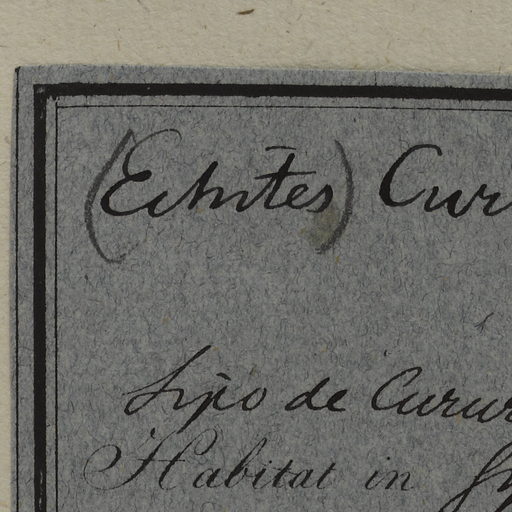 (Echites) Cur
Sipo de Curur
Habitat in Sy